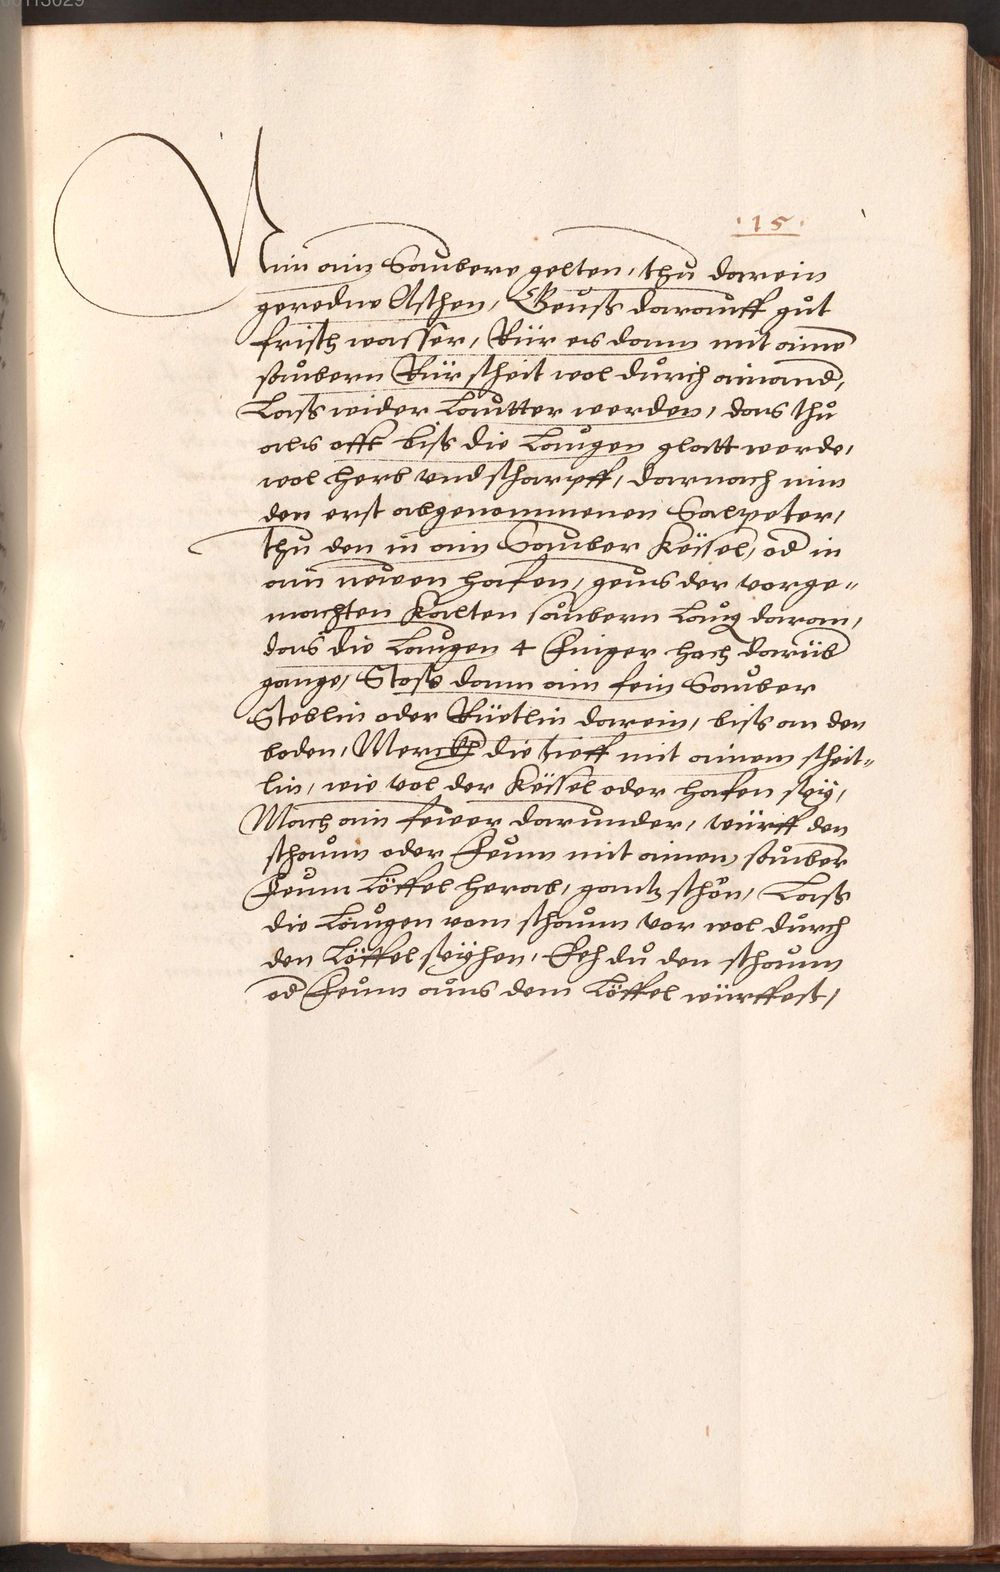 · 15 ·
Nim ain Saubere gelten, thu darein
geredne Aschen, Geuß darauff gůt
frisch wasser, Rür es dann mit aine
saubern Rür scheit wol durch ainand,
Lass wider Lautter werden, das thů
als offt biß die Laugen glatt werde,
wol herb vnd scharpff, darnach nim
den erst abgenommenen Salpeter,
thu den in ain Sauber Kessel, od in
ain newen hafen, geus der vorge-
machten Kalten saubern Laug daran,
das die Laugen 4 Finger hoch darüb
gange, Stoss dann ain fein Sauber
Steblin oder Rüetlin darein, biss an den
boden, Merckh die tieff mit ainem scheit-
lin, wie vol der Kessel oder hafen sey,
Mach ain fewer darunder, würff den
schaum oder Feum mit ainem sauber
Feum Löffel herab, gantz schön, Lass
die Laugen vom schaum vor wol durch
den Löffel seyhen, Eeh du den schaum
od Feum aus dem Löffel würffest,